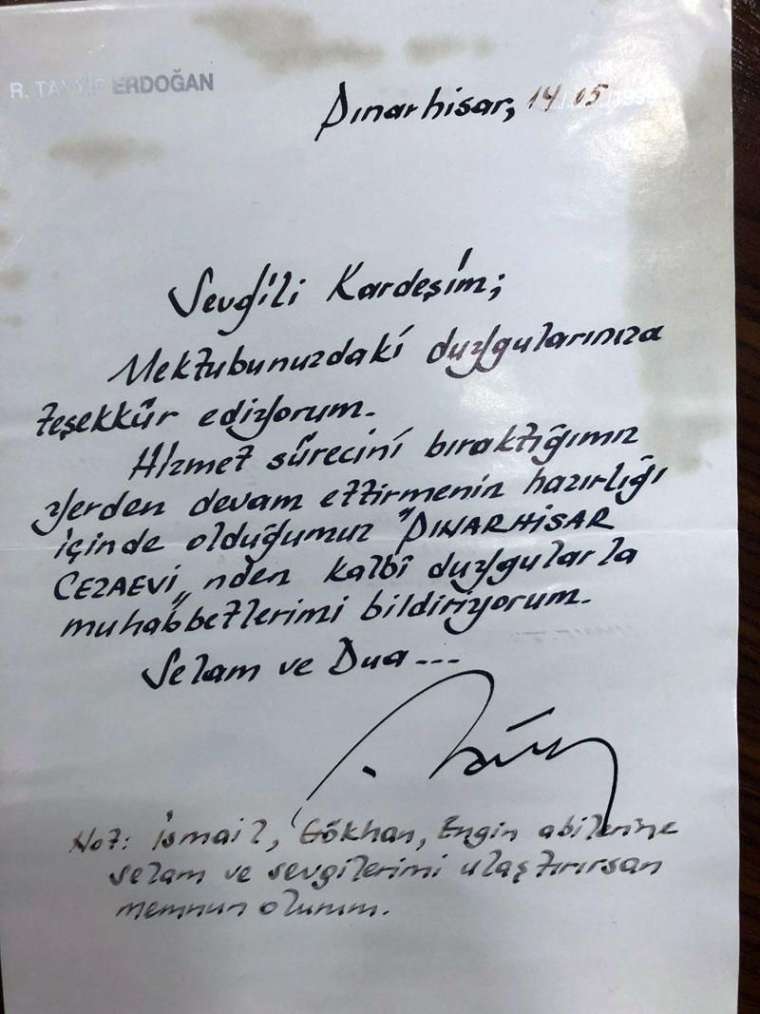 R. TAYYİP ERDOĞAN
Pınarhisar, 14 05
Sevgili Kardeşim;
Mektubunuzdaki duygularınıza
teşekkür ediyorum.
Hizmet sürecini bıraktığımız
yerden devam ettirmenin hazırlığı
içinde olduğumuz "PINARHİSAR
CEZAEVİ„nden kalbî duygularla
muhabbetlerimi bildiriyorum.
Selam ve Dua...
Not: İsmail, Gökhan, Engin abilerine
selam ve sevgilerimi ulaştırırsan
memnun olurum.